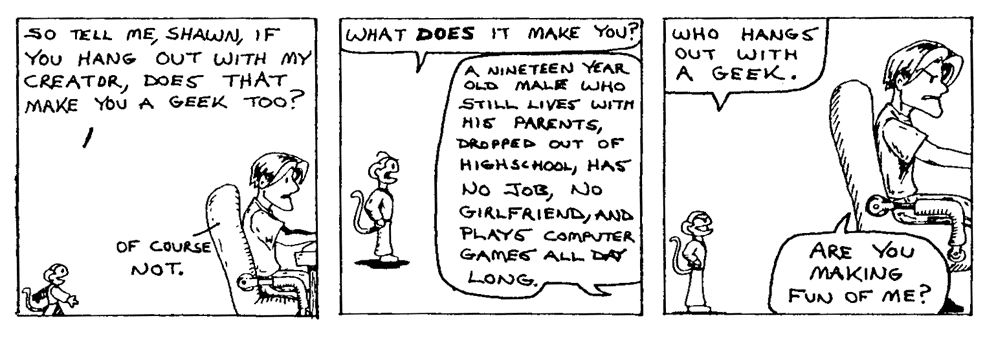 SO TELL ME, SHAWN, IF
YOU HANG OUT WITH MY
CREATOR, DOES THAT
MAKE YOU A GEEK TOO?
OF COURSE
NOT.
WHAT DOES IT MAKE YOU?
A NINETEEN YEAR
OLD MALE WHO
STILL LIVES WITH
HIS PARENTS,
DROPPED OUT OF
HIGHSCHOOL, HAS
NO JOB, NO
GIRLFRIEND, AND
PLAYS COMPUTER
GAMES ALL DAY
LONG.
WHO HANGS
OUT WITH
A GEEK.
ARE YOU
MAKING
FUN OF ME?